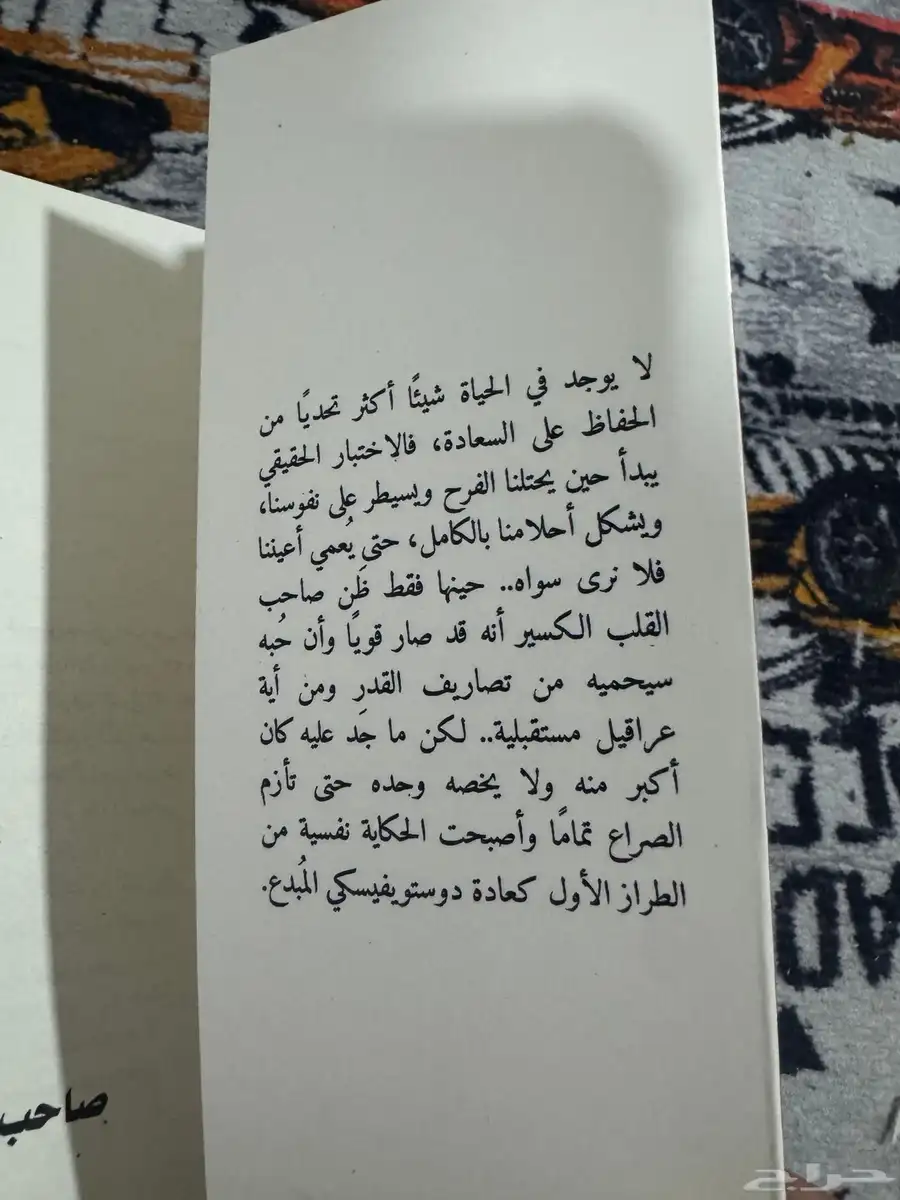 لا يوجد في الحياة شيئًا أكثر تحديًا من
الحفاظ على السعادة، فالاختبار الحقيقي
يبدأ حين يحتلنا الفرح ويسيطر على نفوسنا،
ويشكل أحلامنا بالكامل، حتى يُعمي أعيننا
فلا نرى سواه.. حينها فقط ظَن صاحب
القلب الكسير أنه قد صار قويًا وأن حُبه
سيحميه من تصاريف القدر ومن أية
عراقيل مستقبلية.. لكن ما جَد عليه كان
أكبر منه ولا يخصه وحده حتى تأزم
الصراع تمامًا وأصبحت الحكاية نفسية من
الطراز الأول كعادة دوستويفيسكي المُبدع.
صاحب
حراج